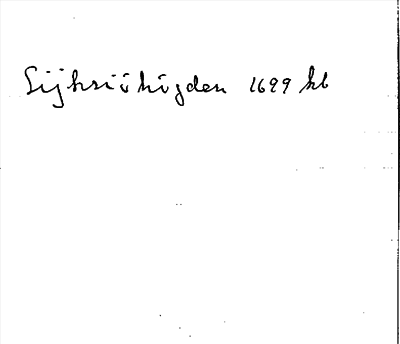 Sijksiöhögden 1699 kb